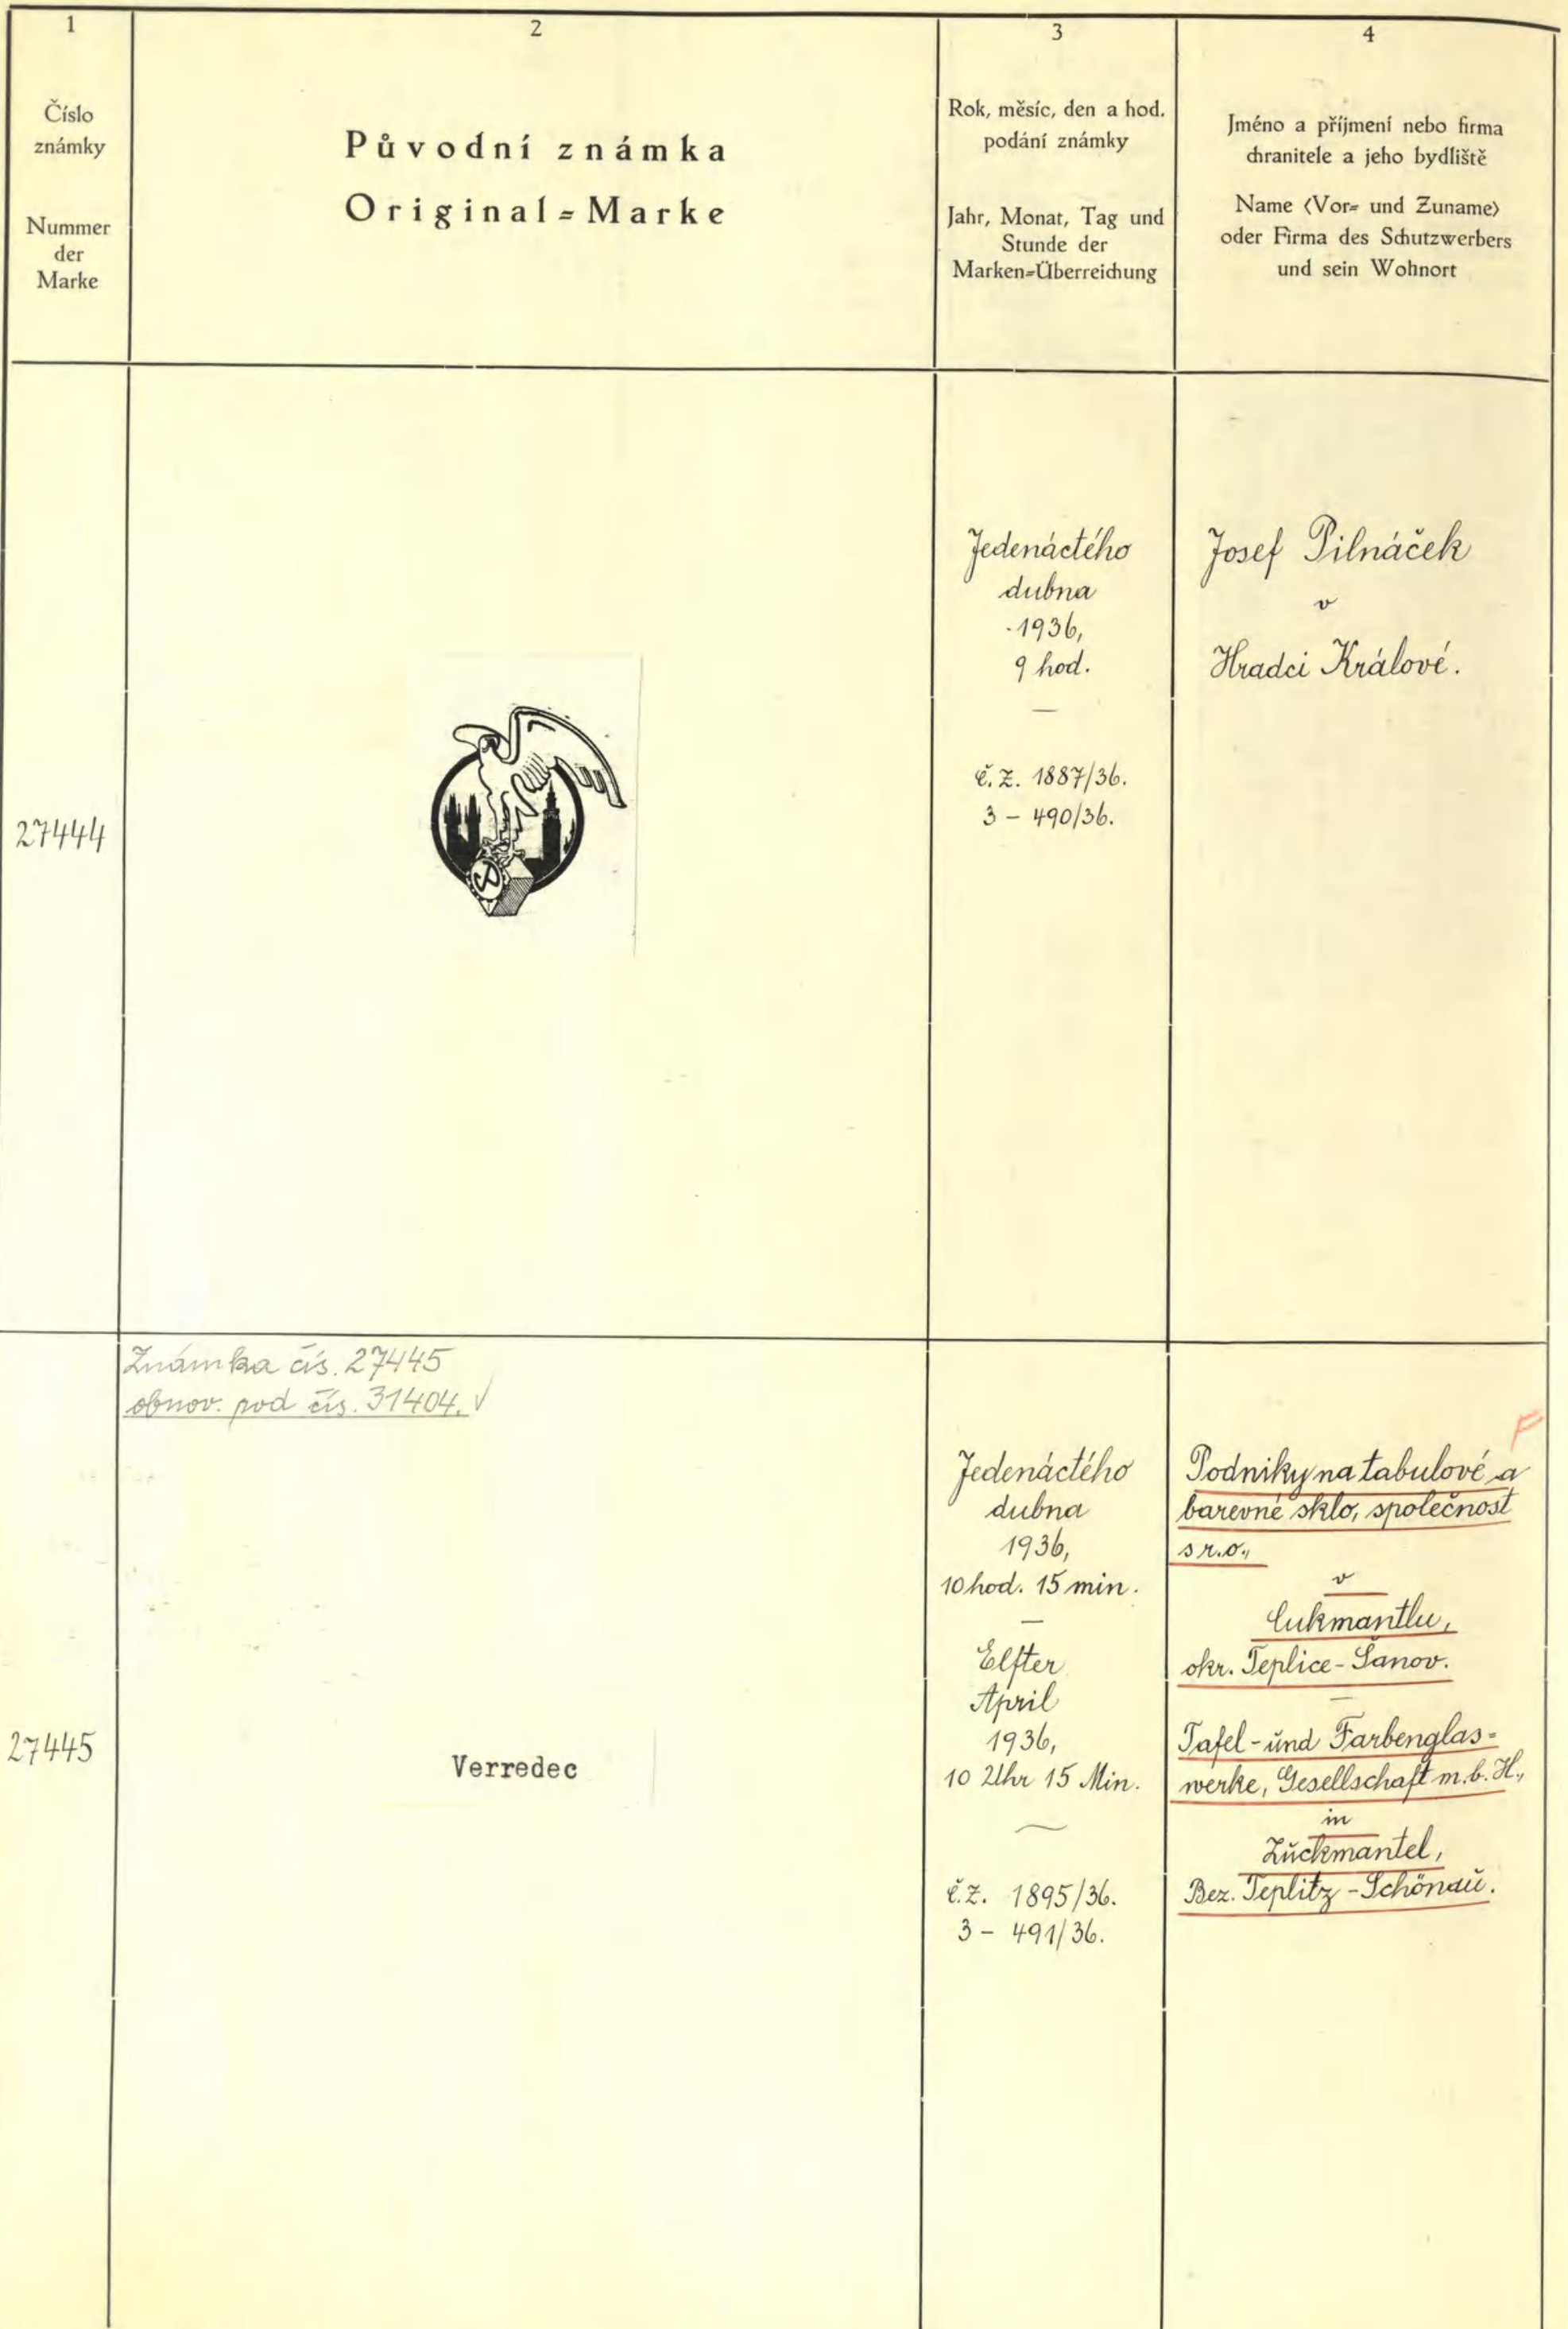 1
Číslo
známky
Nummer
der
Marke
2
Původní známka
Original=Marke
3
Rok, měsíc, den a hod.
podání známky
Jahr, Monat, Tag und
Stunde der
Marken=Überreichung
4
Jméno a příjmení nebo firma
chranitele a jeho bydliště
Name (Vor= und Zuname)
oder Firma des Schutzwerbers
und sein Wohnort
27444
Jedenáctého
dubna
1936,
9 hod.
—
č.z. 1887/36.
3 – 490/36.
Josef Pilnáček
v
Hradci Králové.
Známka čís. 27445
obnov. pod čís. 31404. √
27445
Verredec
Jedenáctého
dubna
1936,
10 hod. 15 min.
—
Elfter
April
1936,
10 Uhr 15 Min.
č.z. 1895/36.
3 – 491/36.
F
Podniky na tabulové a
barevné sklo, společnost
s r.o.,
v
Cukmantlu,
okr. Teplice-Šanov.
—
Tafel- und Farbenglas-
werke, Gesellschaft m.b.H.,
in
Zuckmantel,
Bez. Teplitz-Schönau.